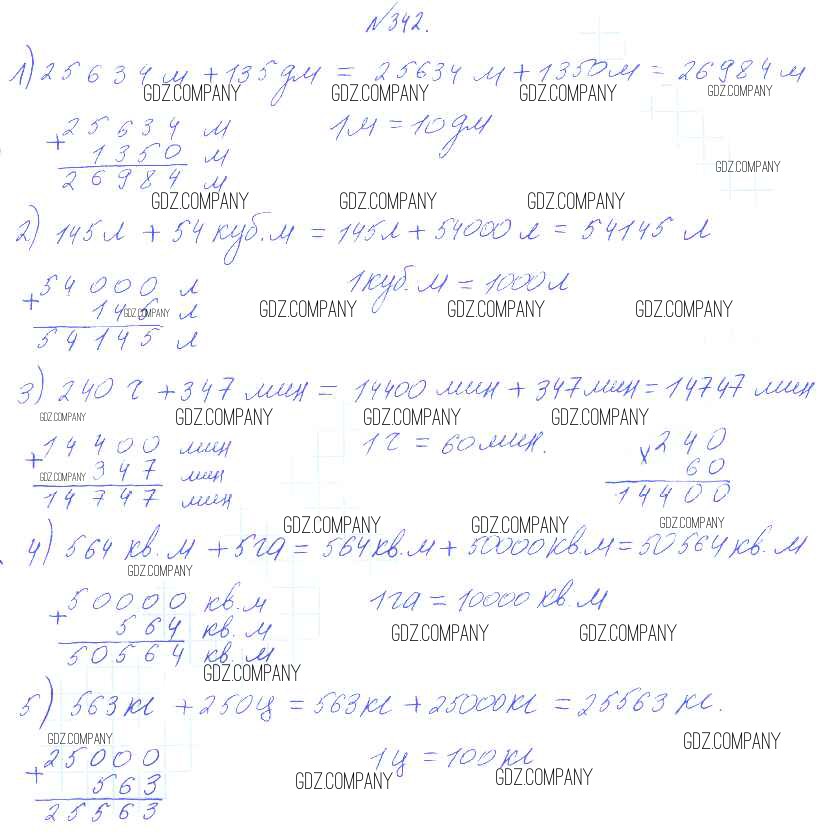 №342.
1) 25634 м + 135 дм = 25634 м + 1350 м = 26984 м
GDZ.COMPANY GDZ.COMPANY GDZ.COMPANY GDZ.COMPANY
25634 м 1 м = 10 дм
+ 1350 м
GDZ.COMPANY
26984 м
GDZ.COMPANY GDZ.COMPANY GDZ.COMPANY
2) 145 л + 54 куб. м = 145 л + 54000 л = 54145 л
54000 л 1 куб. м = 1000 л
+ 145 л
GDZ.COMPANY GDZ.COMPANY GDZ.COMPANY GDZ.COMPANY
54145 л
3) 240 ч + 347 мин = 14400 мин + 347 мин = 14747 мин
GDZ.COMPANY GDZ.COMPANY GDZ.COMPANY GDZ.COMPANY
14400 мин 1 ч = 60 мин. 240
+ 347 мин × 60
GDZ.COMPANY
14747 мин 14400
GDZ.COMPANY GDZ.COMPANY GDZ.COMPANY
4) 564 кв. м + 5 га = 564 кв. м + 50000 кв. м = 50564 кв. м
GDZ.COMPANY
50000 кв. м 1 га = 10000 кв. м
+ 564 кв. м
GDZ.COMPANY GDZ.COMPANY
50564 кв. м
GDZ.COMPANY
5) 563 кг + 250 ц = 563 кг + 25000 кг = 25563 кг.
GDZ.COMPANY GDZ.COMPANY
25000 1 ц = 100 кг
+ 563
GDZ.COMPANY GDZ.COMPANY
25563